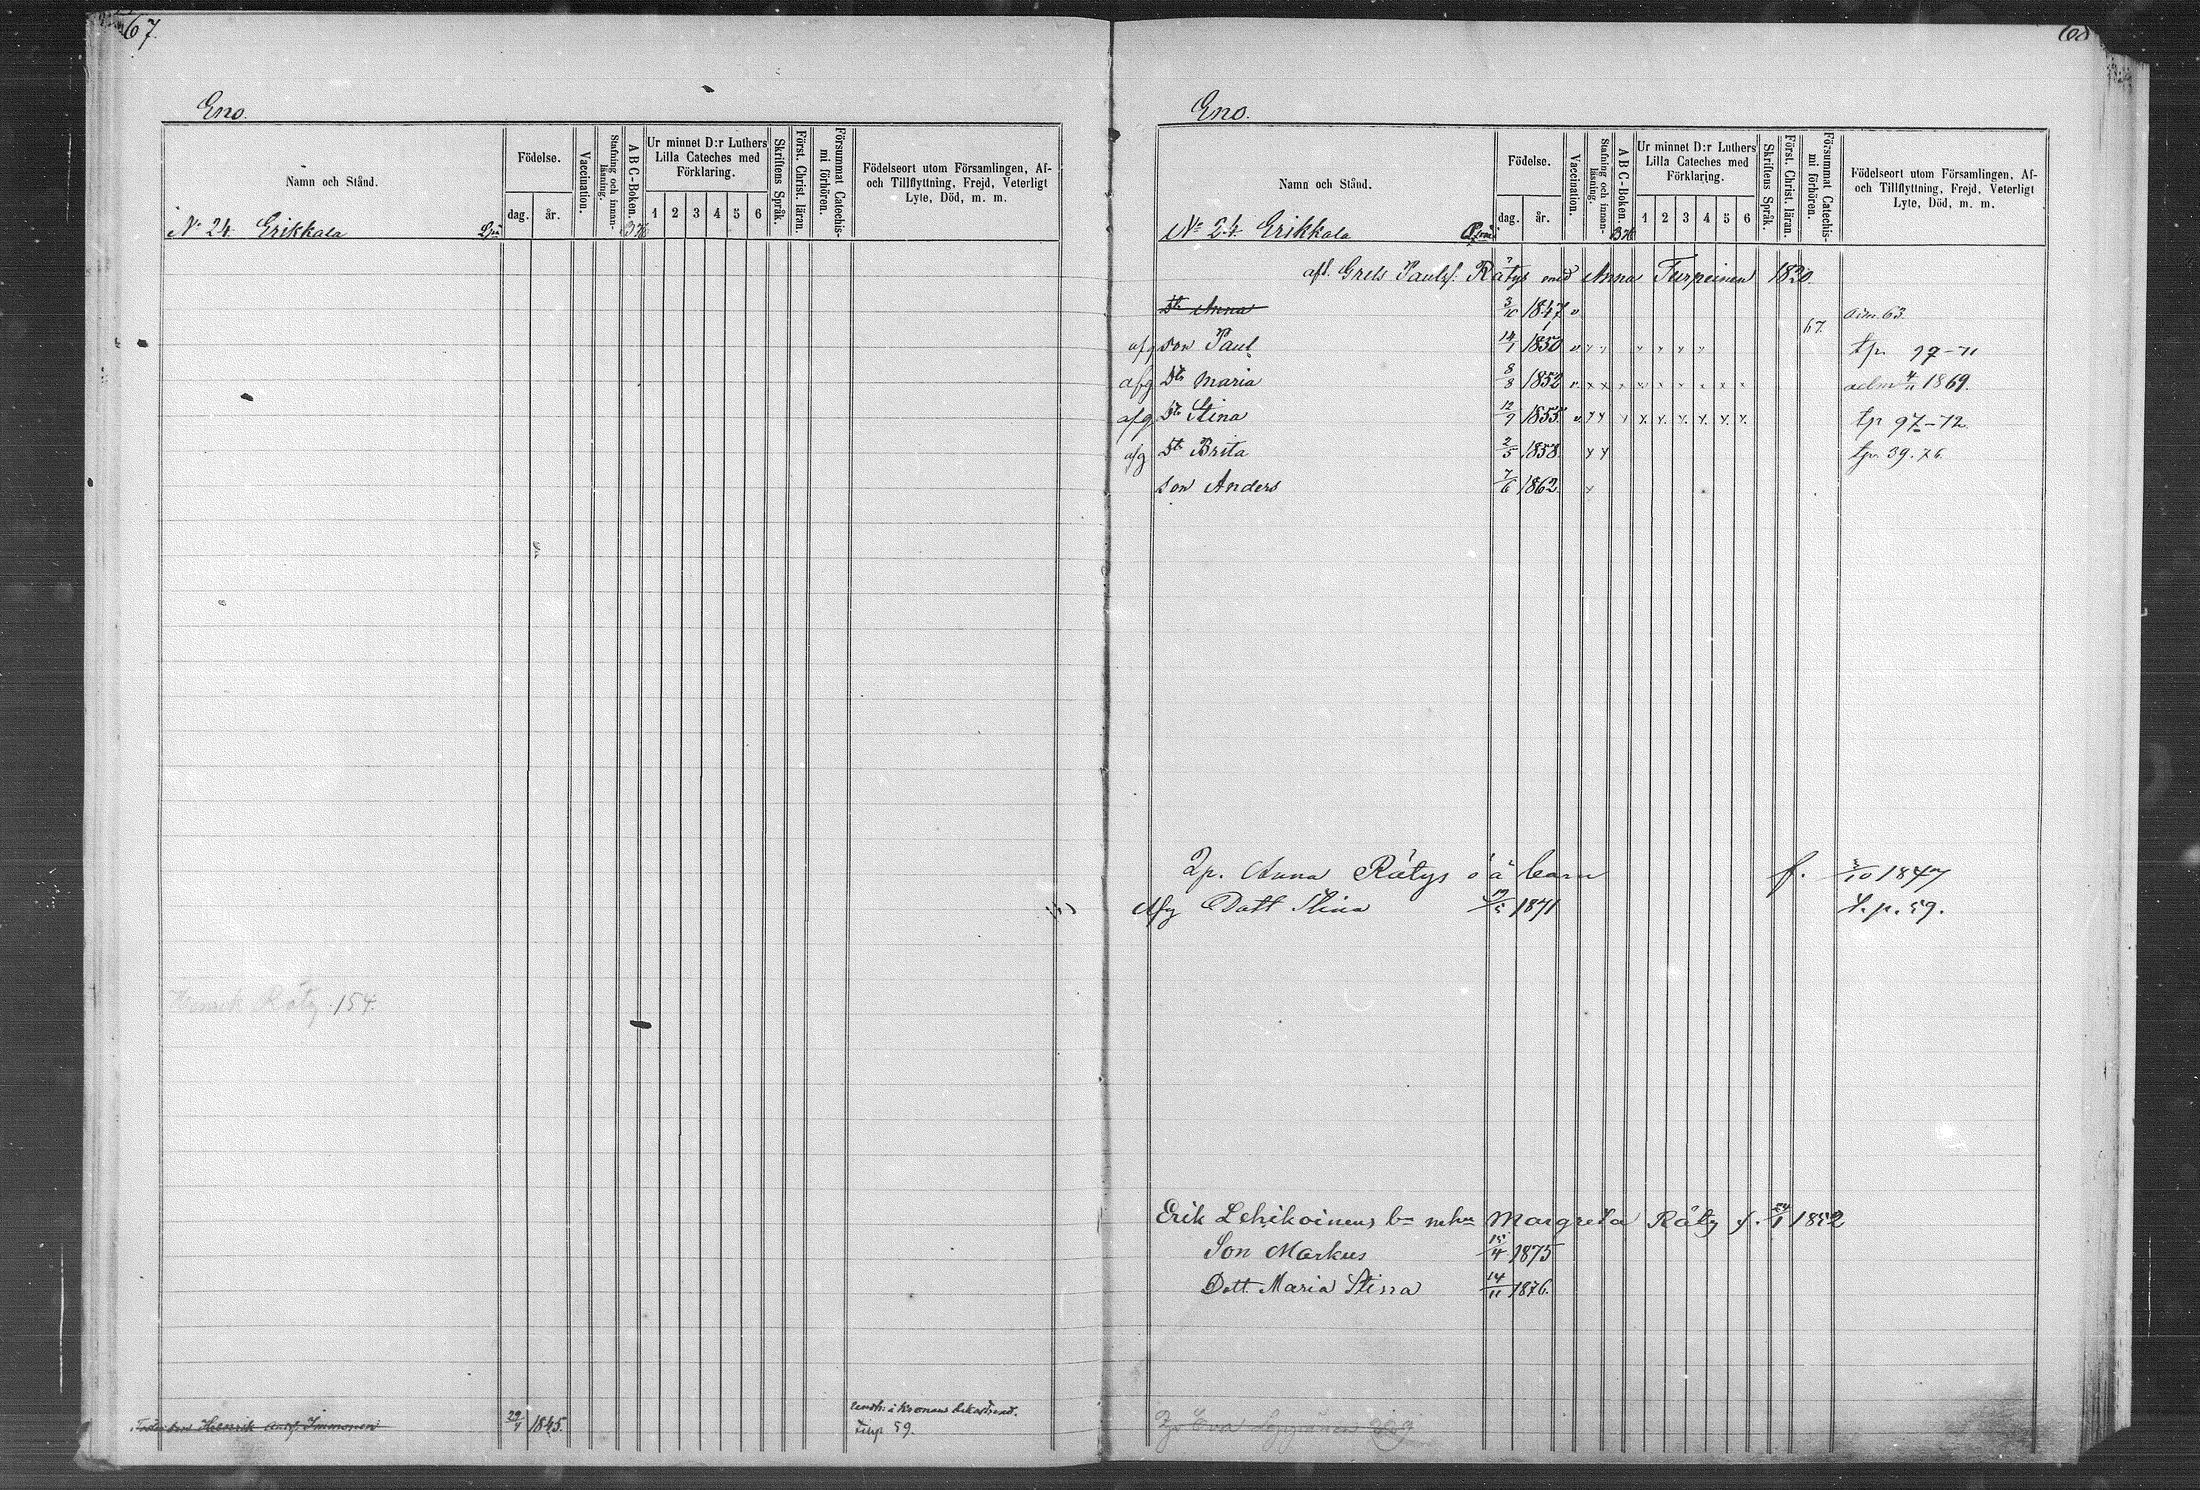 67.
Eno.
Namn och Stånd.
Födelse.
dag. år.
Vaccination.
Stafning och innan-läsning.
A B C-Boken.
Ur minnet D:r Luthers
Lilla Cateches med
Förklaring.
1 2 3 4 5 6
Skriftens Språk.
Först. Christ. läran.
Försummat Catechis-
mi förhören.
Födelseort utom Församlingen, Af-
och Tillflyttning, Frejd, Veterligt
Lyte, Död, m. m.
No 24. Erikkala
Henrik Räty 154.
Henrik Immonen 29/4 1845.
59.
68
Eno.
Namn och Stånd.
Födelse.
dag. år.
Vaccination.
Stafning och innan-läsning.
A B C-Boken.
Ur minnet D:r Luthers
Lilla Cateches med
Förklaring.
1 2 3 4 5 6
Skriftens Språk.
Först. Christ. läran.
Försummat Catechis-
mi förhören.
Födelseort utom Församlingen, Af-
och Tillflyttning, Frejd, Veterligt
Lyte, Död, m. m.
No 24. Erikkala
afl. Grels Paulss. Rätys med Anna Turpeinen 1820.
Dr Anna 3/10 1847 63.
67.
afg son Paul 14/1 1850 tp. 97-71
afg Dr Maria 8/8 1852 adm 4/11 1869.
afg Dr Stina 12/9 1855. tp 97-72.
afg Dr Brita 2/5 1858. tp. 39. 76.
son Anders 7/6 1862.
Anna Rätys o ä barn f. 3/10 1847
Afg Dott Stina 19/5 1871 t. p. 59.
Erik Lehikoinens Margreta Räty f. 1852
Son Markus 15/4 1875
Dott. Maria Stina 14/11 1876.
Eva